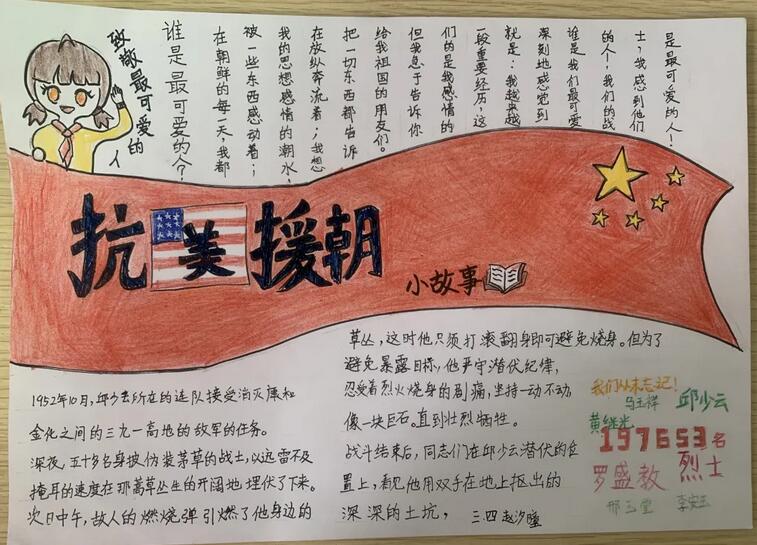 致敬最可爱的人
谁是最可爱的人？
在朝鲜的每一天，我都
被一些东西感动着；
我的思想感情的潮水，
在放纵奔流着；我想
把一切东西都告诉
给我祖国的朋友们。
但我急于告诉你
们的是我感情的
段重要经历，这
就是：我越来越
深刻地感觉到
谁是我们最可爱
的人！我们的战
士，我感到他们
是最可爱的人！
抗美援朝
小故事
1952年10月，邱少云所在的连队接受消灭康和
金化之间的三九一高地的敌军的任务。
深夜，五十多名身披伪装茅草的战士，以迅雷不及
掩耳的速度在那蒿草丛生的开阔地埋伏了下来。
次日中午，敌人的燃烧弹引燃了他身边的
草丛，这时他只须打滚翻身即可避免烧身。但为了
避免暴露目标，他严守潜伏纪律，
忍受着烈火烧身的剧痛，坚持一动不动，
像一块巨石。直到壮烈牺牲。
战斗结束后，同志们在邱少云潜伏的位
置上，看见他用双手在地上抠出的
深深的土坑，
三.四 赵汐瞳
我们从未忘记！
马玉祥 邱少云
黄继光
197653名
罗盛教 烈士
邢玉堂 李安玉